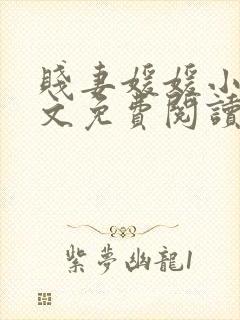 賤妻媛媛小
文免費閱讀
紫夢幽龍1